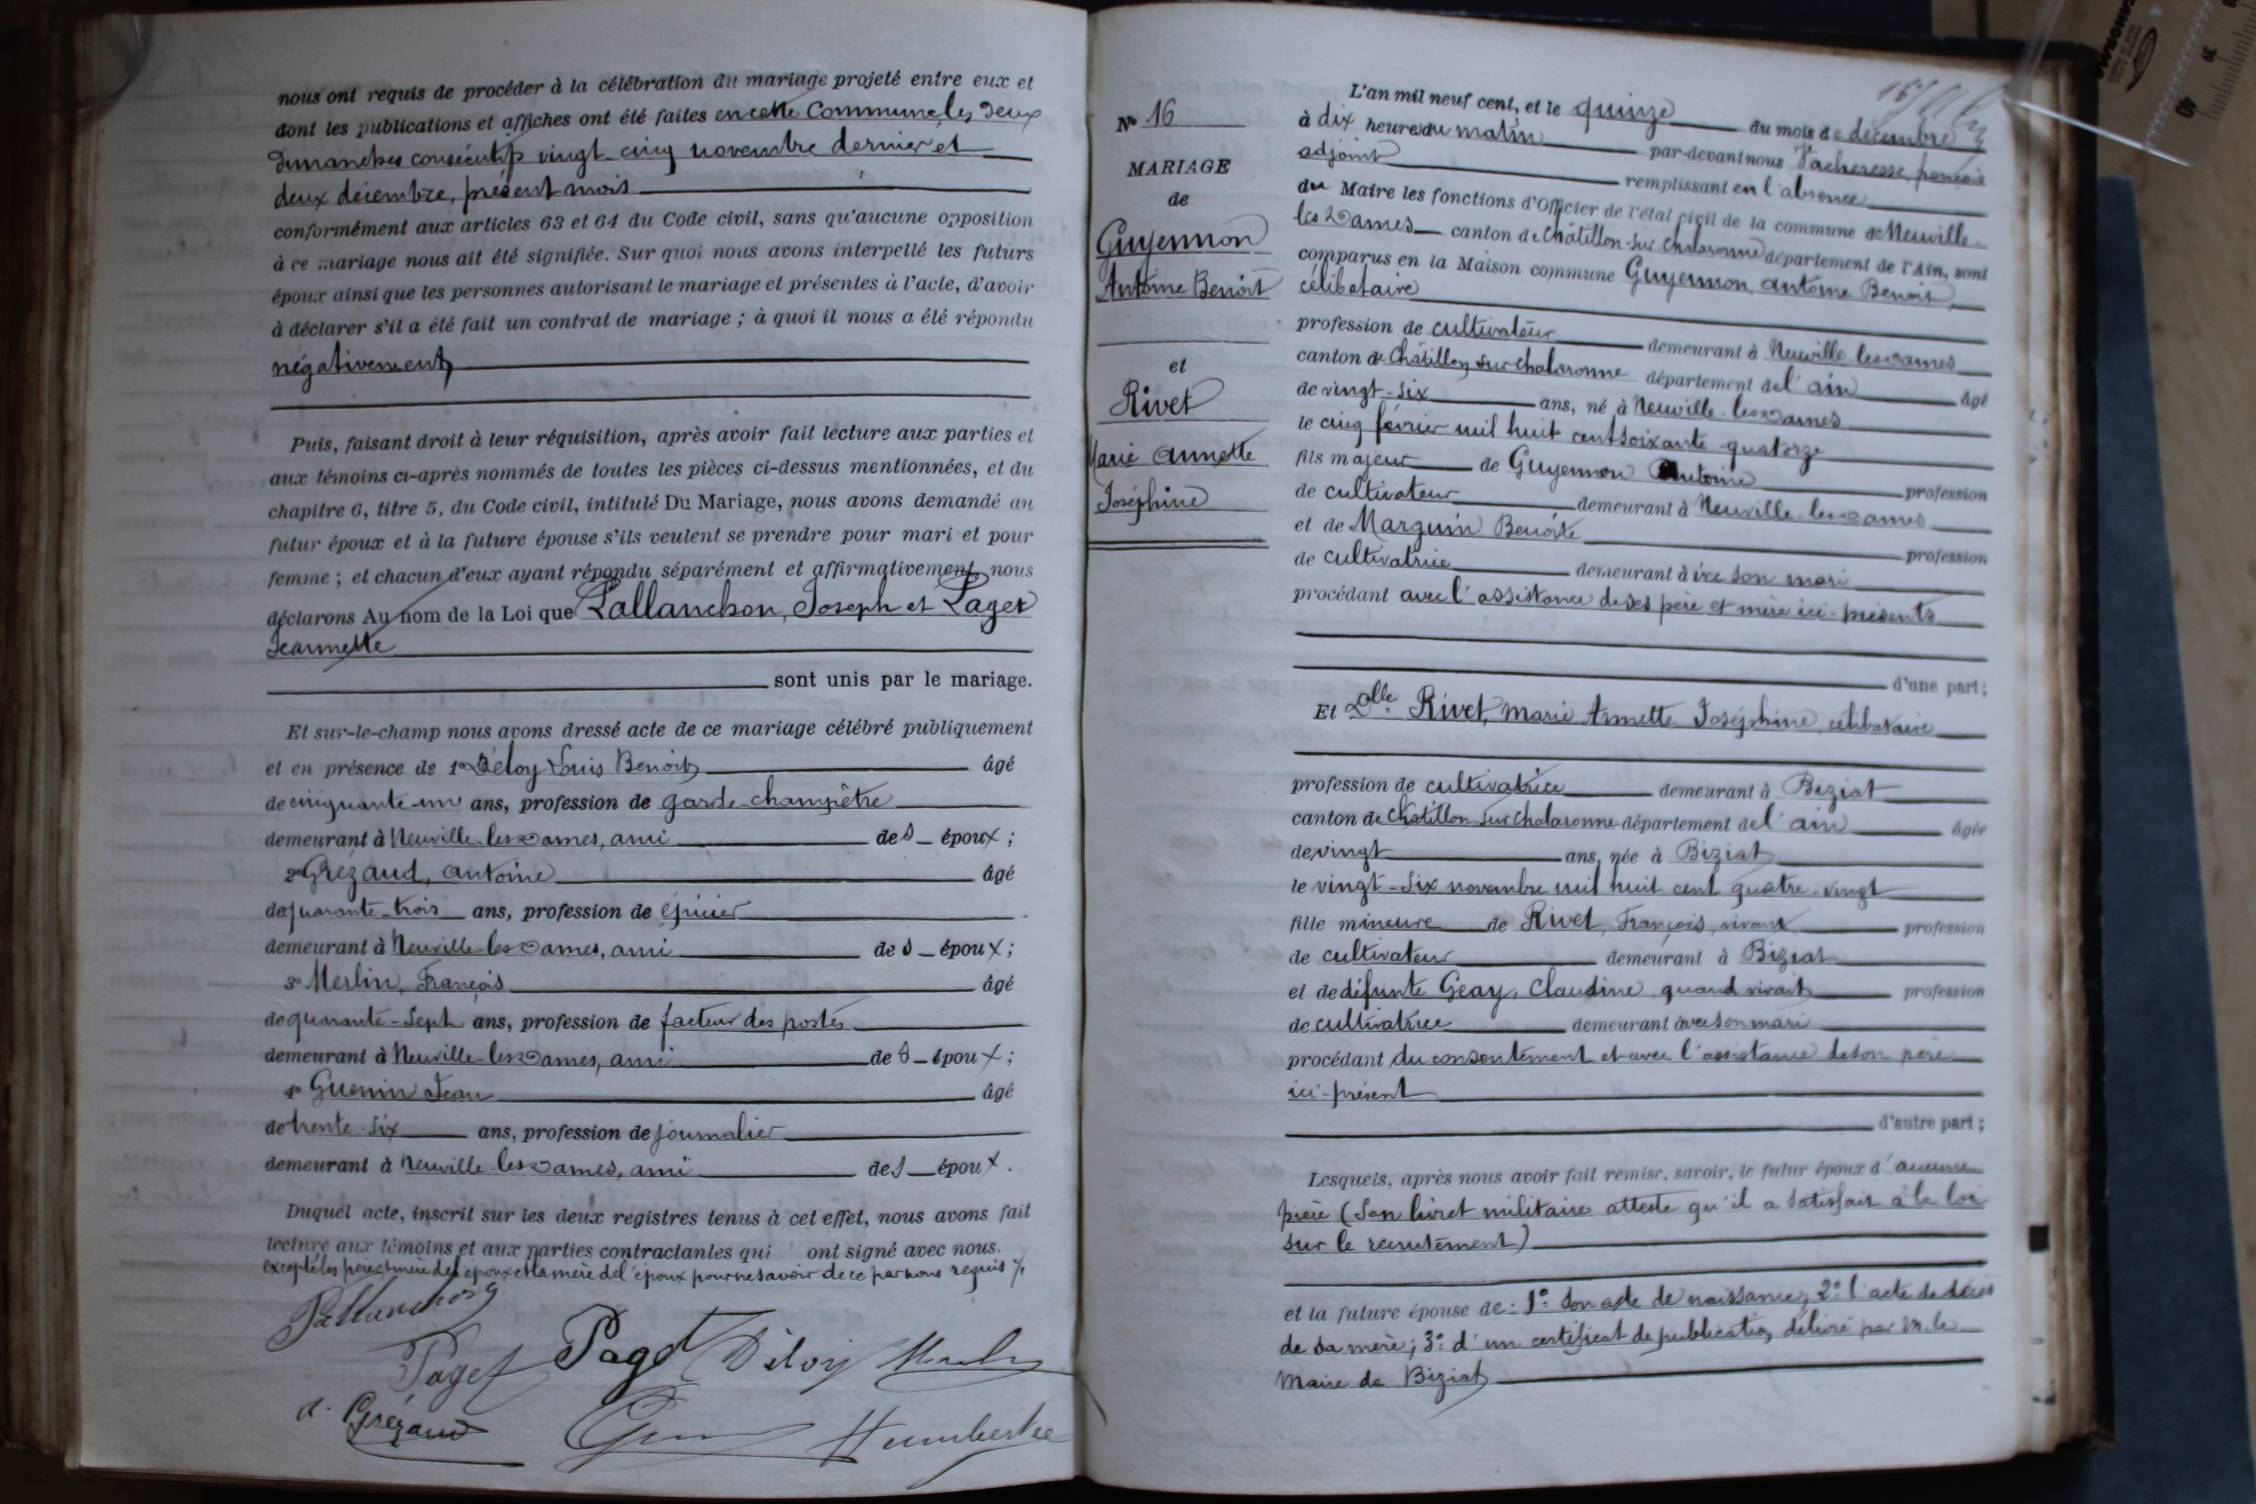 nous ont requis de procéder à la célébration du mariage projeté entre eux et
dont les publications et affiches ont été faites en cette Commune les deux
dimanches consécutifs vingt-cinq novembre dernier et
deux décembre, présent mois
conformément aux articles 63 et 64 du Code civil, sans qu'aucune opposition
à ce mariage nous ait été signifiée. Sur quoi nous avons interpellé les futurs
époux ainsi que les personnes autorisant le mariage et présentes à l'acte, d'avoir
à déclarer s'il a été fait un contrat de mariage ; à quoi il nous a été répondu
négativement
Puis, faisant droit à leur réquisition, après avoir fait lecture aux parties et
aux témoins ci-après nommés de toutes les pièces ci-dessus mentionnées, et du
chapitre 6, titre 5, du Code civil, intitulé Du Mariage, nous avons demandé au
futur époux et à la future épouse s'ils veulent se prendre pour mari et pour
femme ; et chacun d'eux ayant répondu séparément et affirmativement, nous
déclarons Au nom de la Loi que Pallanchon, Joseph et Paget
Jeannette
sont unis par le mariage.
Et sur-le-champ nous avons dressé acte de ce mariage célébré publiquement
et en présence de 1° Déloy Louis Benoit âgé
de cinquante-un ans, profession de garde-champêtre
demeurant à Neuville-les-Dames, ami des époux ;
2° Grézaud, Antoine âgé
de quarante-trois ans, profession de épicier
demeurant à Neuville-les-Dames, ami des époux ;
3° Merlin, François âgé
de quarante-sept ans, profession de facteur des postes
demeurant à Neuville-les-Dames, ami des époux ;
4° Guenin Jean âgé
de trente-six ans, profession de journalier
demeurant à Neuville-les-Dames, ami des époux.
Duquel acte, inscrit sur les deux registres tenus à cet effet, nous avons fait
lecture aux témoins et aux parties contractantes qui ont signé avec nous.
excepté les père et mère de l'époux et la mère de l'épouse pour ne savoir de ce par nous requis
Pallanchon
Paget Paget Déloy Merlin
A. Grézaud
N° 16
MARIAGE
de
Guyennon
Antoine Benoit
et
Rivet
Marie Annette
Joséphine
L'an mil neuf cent, et le quinze du mois de décembre
à dix heures du matin par-devant nous Vacheresse, françois
adjoint remplissant en l'absence
du Maire les fonctions d'Officier de l'état civil de la commune de Neuville-
les Dames canton de Châtillon-sur-Chalaronne département de l'Ain, sont
comparus en la Maison commune Guyennon, Antoine Benoit,
célibataire
profession de cultivateur demeurant à Neuville-les-Dames
canton de Châtillon sur Chalaronne département de l'ain âgé
de vingt-six ans, né à Neuville-les-Dames
le cinq février mil huit cent soixante-quatorze
fils majeur de Guyennon Antoine profession
de cultivateur demeurant à Neuville-les-Dames
et de Marguin Benoîte profession
de cultivatrice demeurant avec son mari
procédant avec l'assistance de ses père et mère ici-présents
d'une part ;
Et Dlle Rivet, Marie Annette Joséphine, célibataire
profession de cultivatrice demeurant à Biziat
canton de Châtillon-sur-Chalaronne département de l'ain âgée
de vingt ans, née à Biziat
le vingt-six novembre mil huit cent quatre-vingt
fille mineure de Rivet, François, vivant profession
de cultivateur demeurant à Biziat
et de défunte Geay, Claudine, quand vivait profession
de cultivatrice demeurant avec son mari
procédant du consentement et avec l'assistance de son père
ici-présent
d'autre part ;
Lesquels, après nous avoir fait remise, savoir, le futur époux d'aucune
pièce (son livret militaire atteste qu'il a satisfait à la loi
sur le recrutement)
et la future épouse de : 1° son acte de naissance ; 2° l'acte de décès
de sa mère ; 3° d'un certificat de publication, délivré par M. le
Maire de Biziat